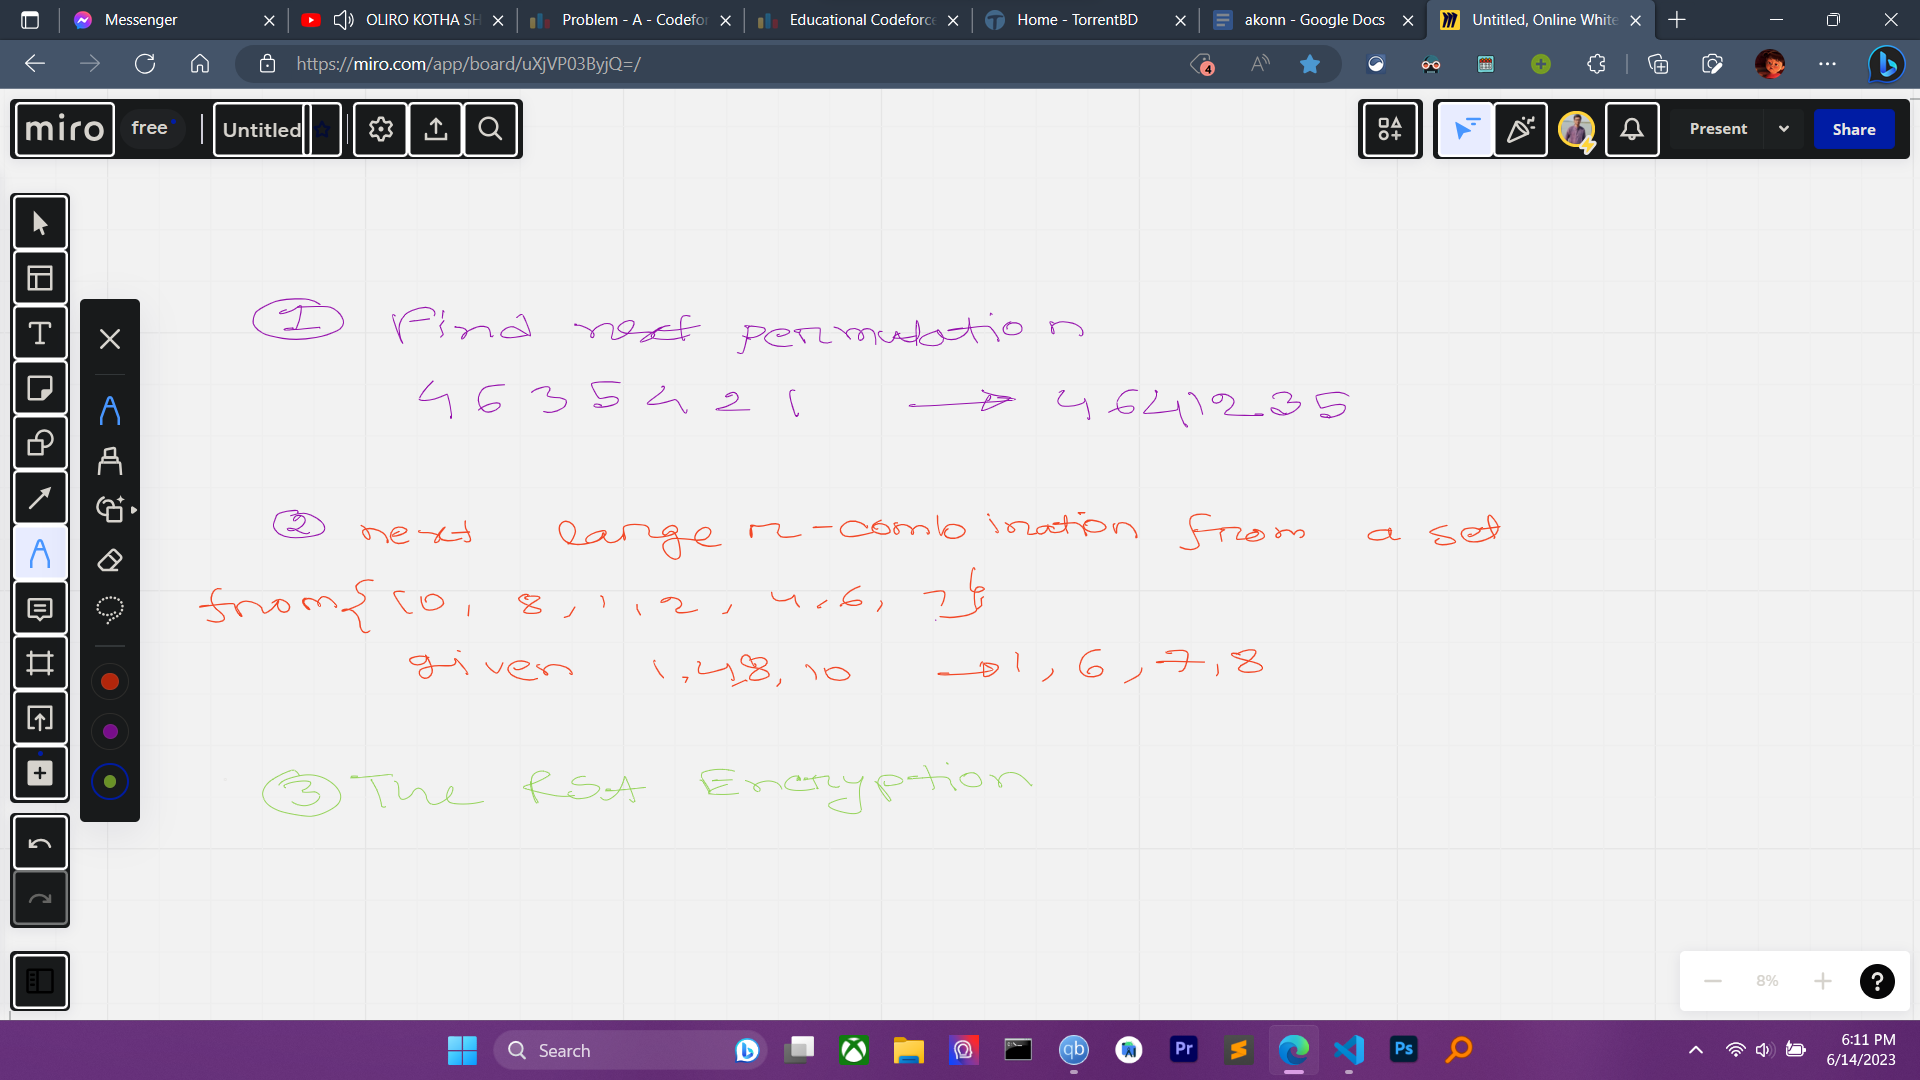 Messenger
OLIRO KOTHA SH
Problem - A - Codefor
Educational Codeforce
Home - TorrentBD
akonn - Google Docs
Untitled, Online White
https://miro.com/app/board/uXjVP03ByjQ=/
4
miro free Untitled
Present Share
1 Find next permutation
4 6 3 5 4 2 1 → 4 6 4 1 2 3 5
2 next large r-combination from a set
from { 10, 8, 1, 2, 4, 6, 7 }
given 1, 4, 8, 10 → 1, 6, 7, 8
3 The RSA Encryption
8%
?
Search
qb
Pr
Ps
6:11 PM
6/14/2023